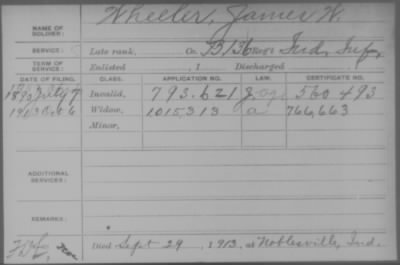 NAME OF SOLDIER: Wheeler, James W.
SERVICE: Late rank, Co. B, 136 Reg't Ind. Inf.
TERM OF SERVICE: Enlisted , 1 Discharged , 1
DATE OF FILING. CLASS. APPLICATION NO. LAW. CERTIFICATE NO.
1890 July 7 Invalid, 793.621 560 493
1913 Oct 6 Widow, 1015,313 a 766,663
Minor,
ADDITIONAL SERVICES:
REMARKS:
Died Sept 29, 1913, at Noblesville, Ind.